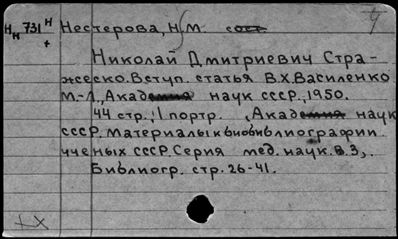 Н 731 Н Нестерова, Н.М. сост
Николай Дмитриевич Стра-
жеско. Вступ. статья В.Х. Василенко
М.-Л., Академия наук СССР, 1950.
44 стр., 1 портр. (Академия наук
СССР. Материалы к биобиблиографии
ученых СССР. Серия мед. наук. в. 3).
Библиогр. стр. 26-41.